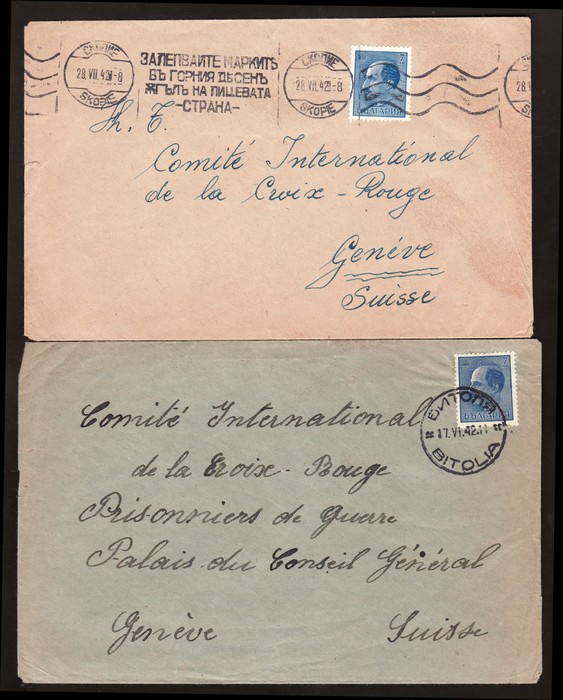 СКОПИЕ
28.VII.42 -8
SKOPIE
ЗАЛЕПВАЙТЕ МАРКИТѢ
ВЪ ГОРНИЯ ДѢСЕНЪ
ЖГЪЛЪ НА ЛИЦЕВАТА
-СТРАНА-
СКОПИЕ
28.VII.42 -8
SKOPIE
БЪЛГАРИЯ
Th. T.
Comité International
de la Croix-Rouge
Genéve
Suisse
БЪЛГАРИЯ
БИТОЛЯ
17.VI.42.11
BITOLJA
Comité International
de la Croix-Rouge
Prisonniers de Guerre
Palais du Conseil Général
Genève Suisse